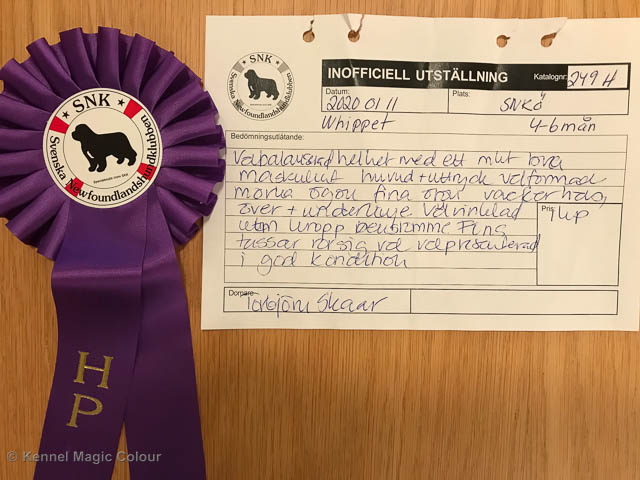 SNK
Svenska Newfoundlandshundklubben
HP
SNK
Svenska Newfoundlandshundklubben
INOFFICIELL UTSTÄLLNING
Katalognr: 249 H
Datum: 2020 01 11
Plats: SNKö
Whippet 4-6 mån
Bedömningsutlåtande:
Välbalanserad helhet med ett mkt bra
maskulint huvud + uttryck välformade
mörka ögon fina öron vacker hals,
över + underlinje välvinklad
kropp benstomme Fina
tassar rörsig väl välpresenterad
i god kondition
Pris: Hp
Domare Torbjörn Skaar
© Kennel Magic Colour